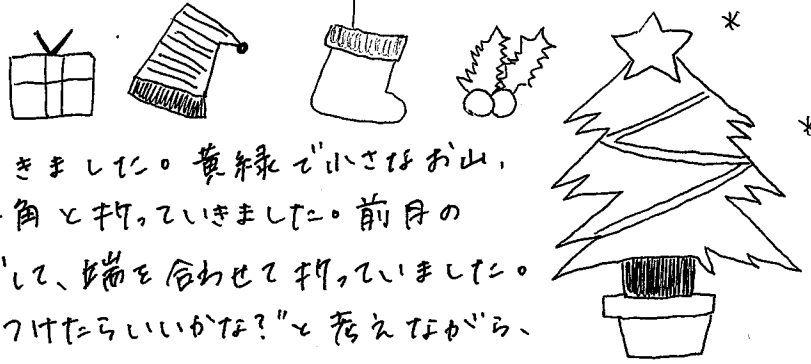 きました。黄緑で小さなお山、
角と折っていきました。前月の
して、端を合わせて折っていました。
つけたらいいかな？"と考えながら、